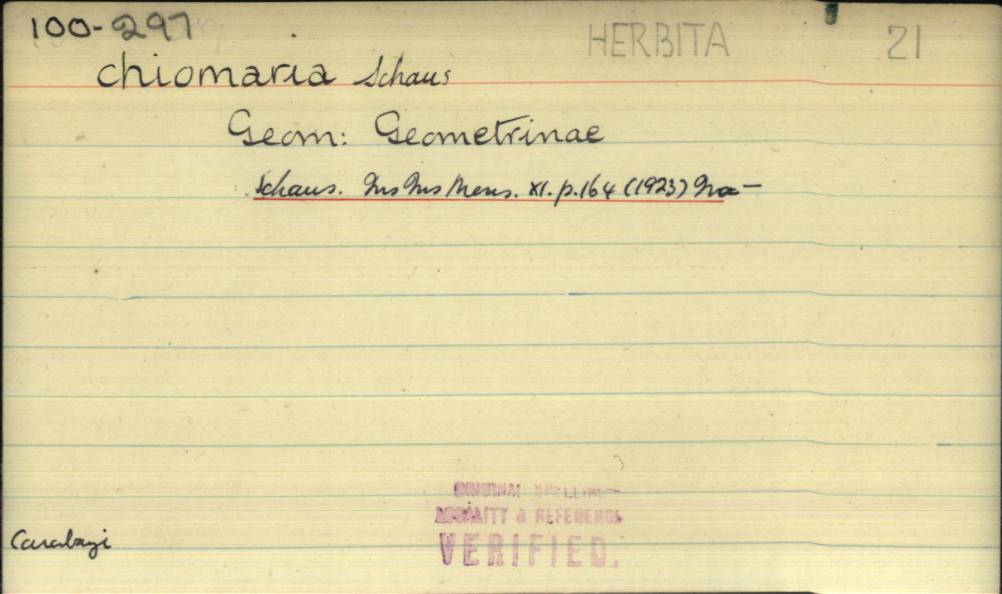 100-297 HERBITA 21
chiomaria Schaus
Geom: Geometrinae
Schaus. Ins Ins Mens. XI. p.164 (1923)
ORIGINAL SPELLING
LOCALITY & REFERENCE
VERIFIED.